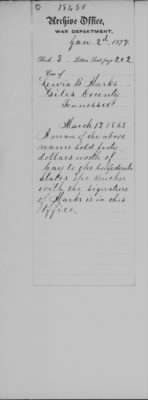 18450
Archive Office,
WAR DEPARTMENT.
Jan 2d 1879.
Book 3 Letters Sent page 202
Case of
Lewis B Marks
Giles County
Tennessee
March 12 1863
A man of the above
name sold forty
dollars worth of
hay to the Confederate
States the voucher
with the signature
of Marks is in this
Office.